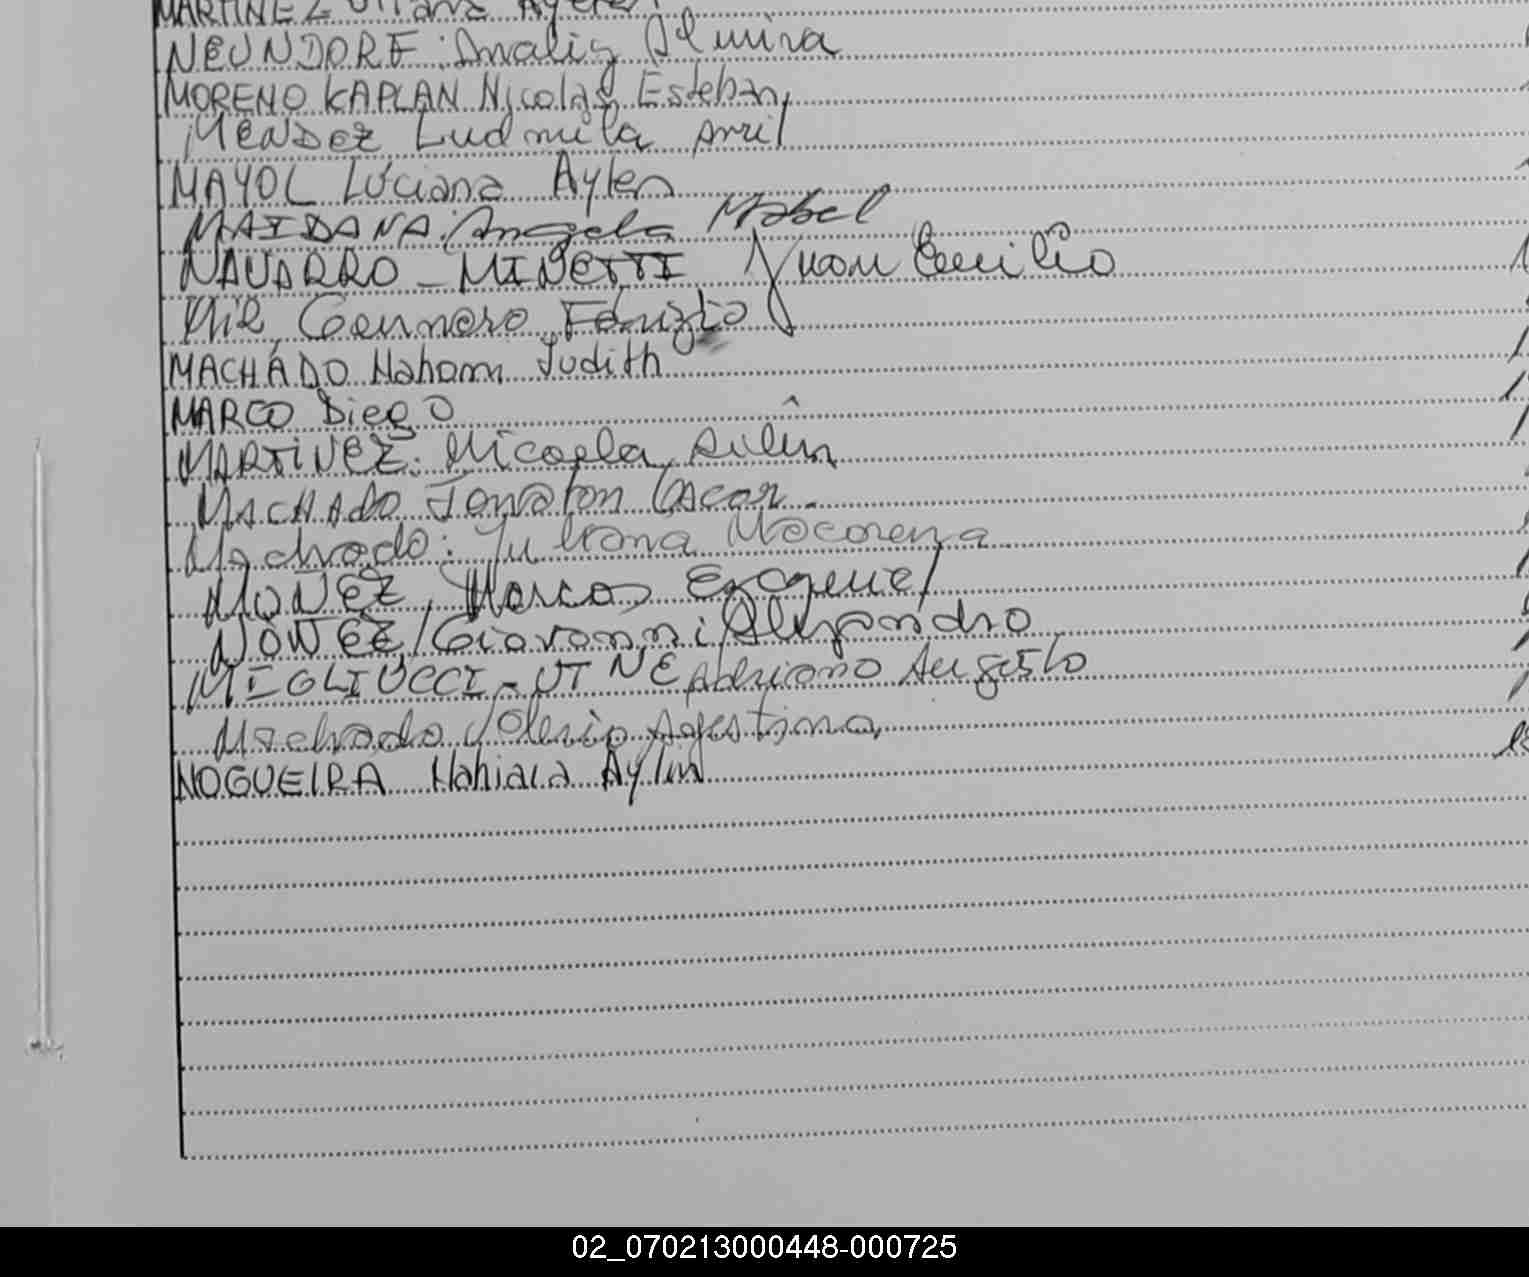 MARTINEZ
NEUNDORF: Analia Elmira
MORENO KAPLAN Nicolas Esteban
MENDEZ Ludmila Avril
MAYOL Luciana Aylen
MAIDANA: Angela Mabel
NAVARRO - MINETTI Juan Emilio
MIR, Gennaro Fabrizio
MACHADO Nahomi Judith
MARCO Diego
MARTINEZ: Micaela Ailen
MACHADO Jonaton Oscar.
Machado: Juliana Macorena
NUÑEZ, Marcos Exequiel
NUÑEZ Giovanni Alejandro
MIGLIUCCI - UTNE Adriano Augusto
Machado Valeria Agostina
NOGUEIRA Nahiara Aylin
02_070213000448-000725